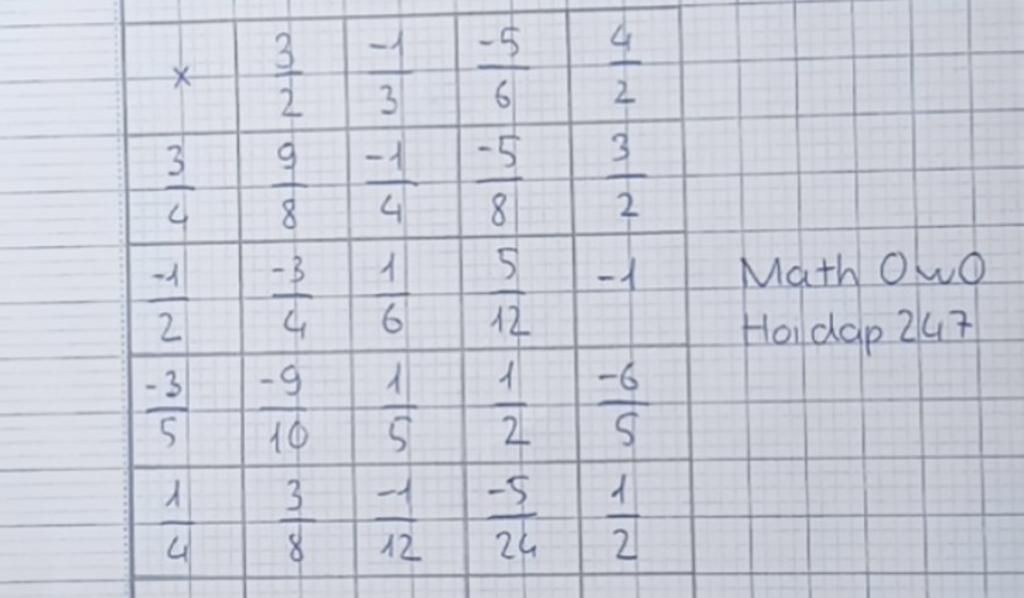 × 3/2 -1/3 -5/6 4/2
3/4 9/8 -1/4 -5/8 3/2
-1/2 -3/4 1/6 5/12 -1
-3/5 -9/10 1/5 1/2 -6/5
1/4 3/8 -1/12 -5/24 1/2
Math OwO
Hoidap 247